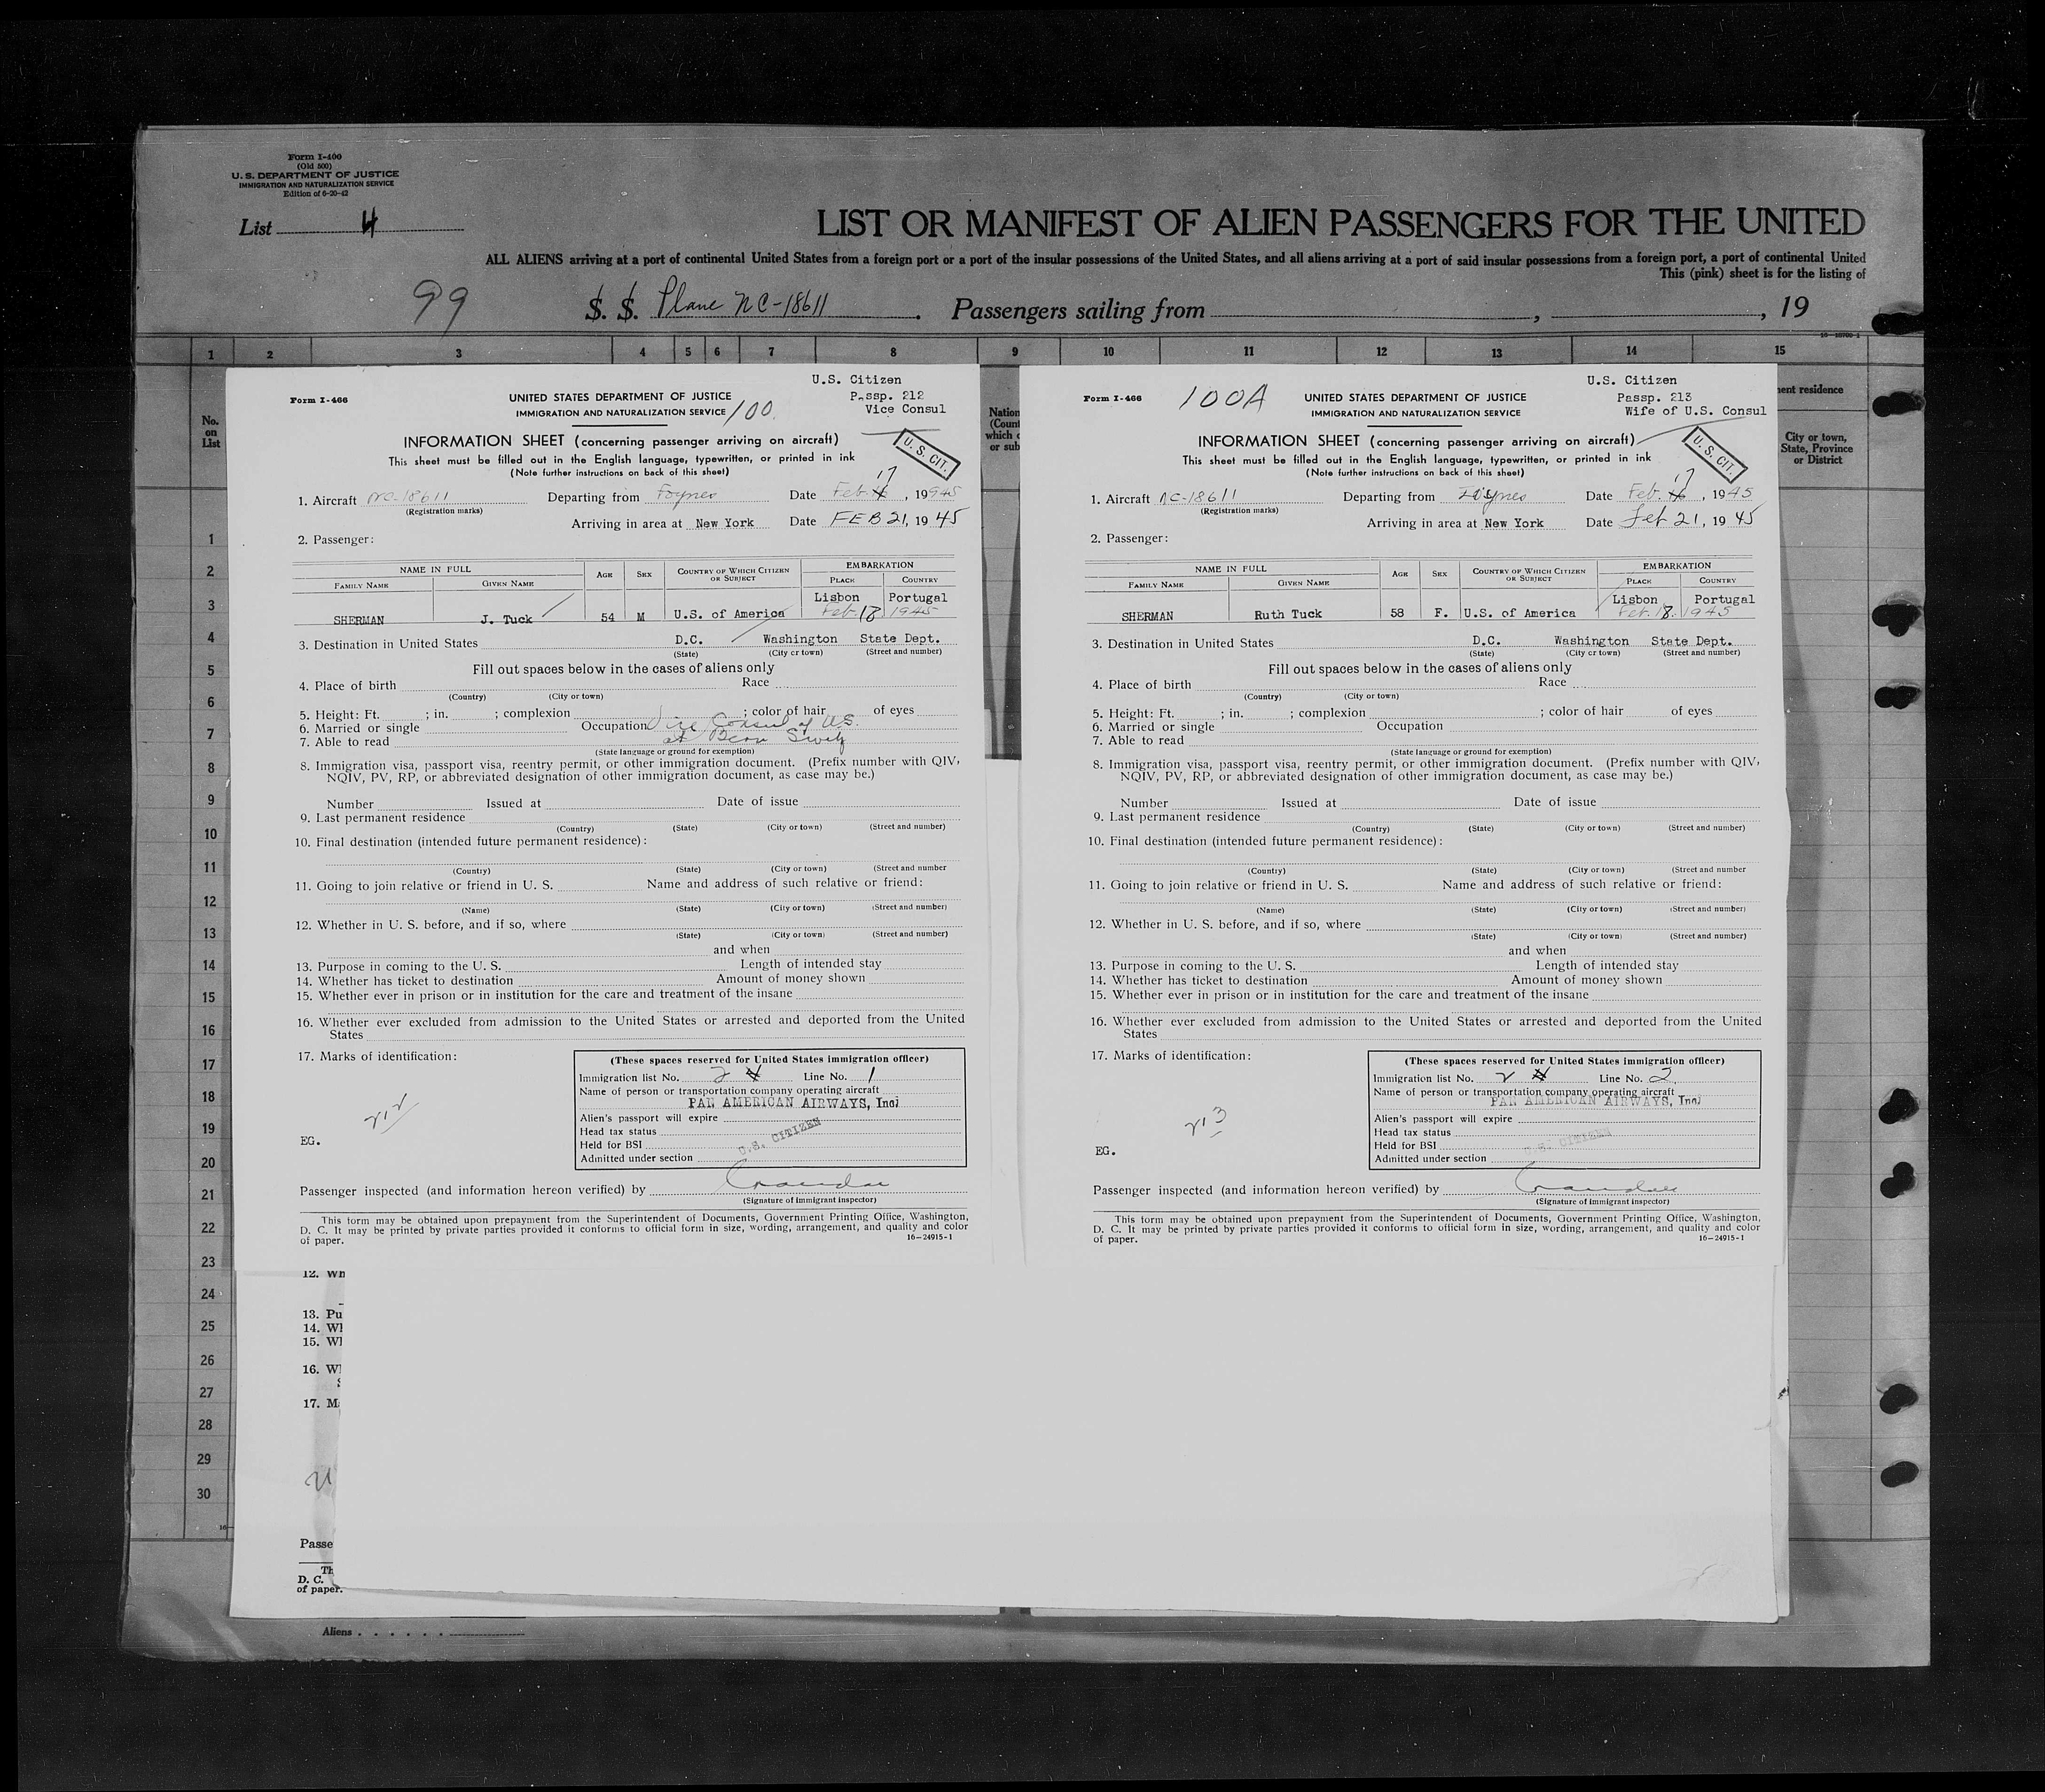 Form I-400
(Old 500)
U. S. DEPARTMENT OF JUSTICE
IMMIGRATION AND NATURALIZATION SERVICE
Edition of 6-20-42
List 4
LIST OR MANIFEST OF ALIEN PASSENGERS FOR THE UNITED
ALL ALIENS arriving at a port of continental United States from a foreign port or a part of the insular possessions of the United States, and all aliens arriving at a port of said insular possessions from a foreign port, a port of continental United
This (pink) sheet is for the listing of
99
S. S. Plane NC-18611. Passengers sailing from , , 19
1 2 3 4 5 6 7 8 9 10 11 12 13 14 15
No.
on
List
1
2
3
4
5
6
7
8
9
10
11
12
13
14
15
16
17
18
19
20
21
22
23
24
25
26
27
28
29
30
U.S. Citizen
Form I-466
UNITED STATES DEPARTMENT OF JUSTICE
Passp. 212
IMMIGRATION AND NATURALIZATION SERVICE
100
Vice Consul
INFORMATION SHEET (concerning passenger arriving on aircraft)
U. S. CIT.
This sheet must be filled out in the English language, typewritten, or printed in ink
(Note further instructions on back of this sheet)
17
1. Aircraft NC-18611 Departing from Foynes Date Feb. 16, 1945
(Registration marks)
Arriving in area at New York Date FEB 21, 1945
2. Passenger:
NAME IN FULL AGE SEX COUNTRY OF WHICH CITIZEN OR SUBJECT EMBARKATION
FAMILY NAME GIVEN NAME PLACE COUNTRY
Lisbon Portugal
SHERMAN J. Tuck 54 M U.S. of America Feb. 18 1945
3. Destination in United States D.C. Washington State Dept.
(State) (City or town) (Street and number)
Fill out spaces below in the cases of aliens only
4. Place of birth Race
(Country) (City or town)
5. Height: Ft. ; in. ; complexion ; color of hair of eyes
6. Married or single Occupation Vice Consul of U.S.
7. Able to read at Bern Switz
(State language or ground for exemption)
8. Immigration visa, passport visa, reentry permit, or other immigration document. (Prefix number with QIV,
NQIV, PV, RP, or abbreviated designation of other immigration document, as case may be.)
Number Issued at Date of issue
9. Last permanent residence
(Country) (State) (City or town) (Street and number)
10. Final destination (intended future permanent residence):
(Country) (State) (City or town) (Street and number
11. Going to join relative or friend in U. S. Name and address of such relative or friend:
(Name) (State) (City or town) (Street and number)
12. Whether in U. S. before, and if so, where
(State) (City or town) (Street and number)
and when
13. Purpose in coming to the U. S. Length of intended stay
14. Whether has ticket to destination Amount of money shown
15. Whether ever in prison or in institution for the care and treatment of the insane
16. Whether ever excluded from admission to the United States or arrested and deported from the United
States
17. Marks of identification:
(These spaces reserved for United States immigration officer)
Immigration list No. 2 4 Line No. 1
Name of person or transportation company operating aircraft
PAN AMERICAN AIRWAYS, Inc.
212
Alien's passport will expire
Head tax status
U.S. CITIZEN
EG.
Held for BSI
Admitted under section
Passenger inspected (and information hereon verified) by
(Signature of immigrant inspector)
This form may be obtained upon prepayment from the Superintendent of Documents, Government Printing Office, Washington,
D. C. It may be printed by private parties provided it conforms to official form in size, wording, arrangement, and quality and color
of paper. 16—24915-1
Nation
(Coun
which c
or sub
U.S. Citizen
Form I-466
100A
UNITED STATES DEPARTMENT OF JUSTICE
Passp. 213
IMMIGRATION AND NATURALIZATION SERVICE
Wife of U.S. Consul
INFORMATION SHEET (concerning passenger arriving on aircraft)
U. S. CIT.
This sheet must be filled out in the English language, typewritten, or printed in ink
(Note further instructions on back of this sheet)
17
1. Aircraft NC-18611 Departing from Foynes Date Feb. 16, 1945
(Registration marks)
Arriving in area at New York Date Feb 21, 1945
2. Passenger:
NAME IN FULL AGE SEX COUNTRY OF WHICH CITIZEN OR SUBJECT EMBARKATION
FAMILY NAME GIVEN NAME PLACE COUNTRY
Lisbon Portugal
SHERMAN Ruth Tuck 58 F. U.S. of America Feb. 18. 1945
3. Destination in United States D.C. Washington State Dept.
(State) (City or town) (Street and number)
Fill out spaces below in the cases of aliens only
4. Place of birth Race
(Country) (City or town)
5. Height: Ft. ; in. ; complexion ; color of hair of eyes
6. Married or single Occupation
7. Able to read
(State language or ground for exemption)
8. Immigration visa, passport visa, reentry permit, or other immigration document. (Prefix number with QIV,
NQIV, PV, RP, or abbreviated designation of other immigration document, as case may be.)
Number Issued at Date of issue
9. Last permanent residence
(Country) (State) (City or town) (Street and number)
10. Final destination (intended future permanent residence):
(Country) (State) (City or town) (Street and number
11. Going to join relative or friend in U. S. Name and address of such relative or friend:
(Name) (State) (City or town) (Street and number)
12. Whether in U. S. before, and if so, where
(State) (City or town) (Street and number)
and when
13. Purpose in coming to the U. S. Length of intended stay
14. Whether has ticket to destination Amount of money shown
15. Whether ever in prison or in institution for the care and treatment of the insane
16. Whether ever excluded from admission to the United States or arrested and deported from the United
States
17. Marks of identification:
(These spaces reserved for United States immigration officer)
Immigration list No. 2 4 Line No. 2
Name of person or transportation company operating aircraft
PAN AMERICAN AIRWAYS, Inc.
213
Alien's passport will expire
Head tax status
U.S. CITIZEN
Held for BSI
EG.
Admitted under section
Passenger inspected (and information hereon verified) by
(Signature of immigrant inspector)
This form may be obtained upon prepayment from the Superintendent of Documents, Government Printing Office, Washington,
D. C. It may be printed by private parties provided it conforms to official form in size, wording, arrangement, and quality and color
of paper. 16—24915-1
ent residence
City or town,
State, Province
or District
12. Wh
13. Pu
14. Wh
15. Wh
16. W
17. M
Passe
Th
D. C.
of paper.
Aliens